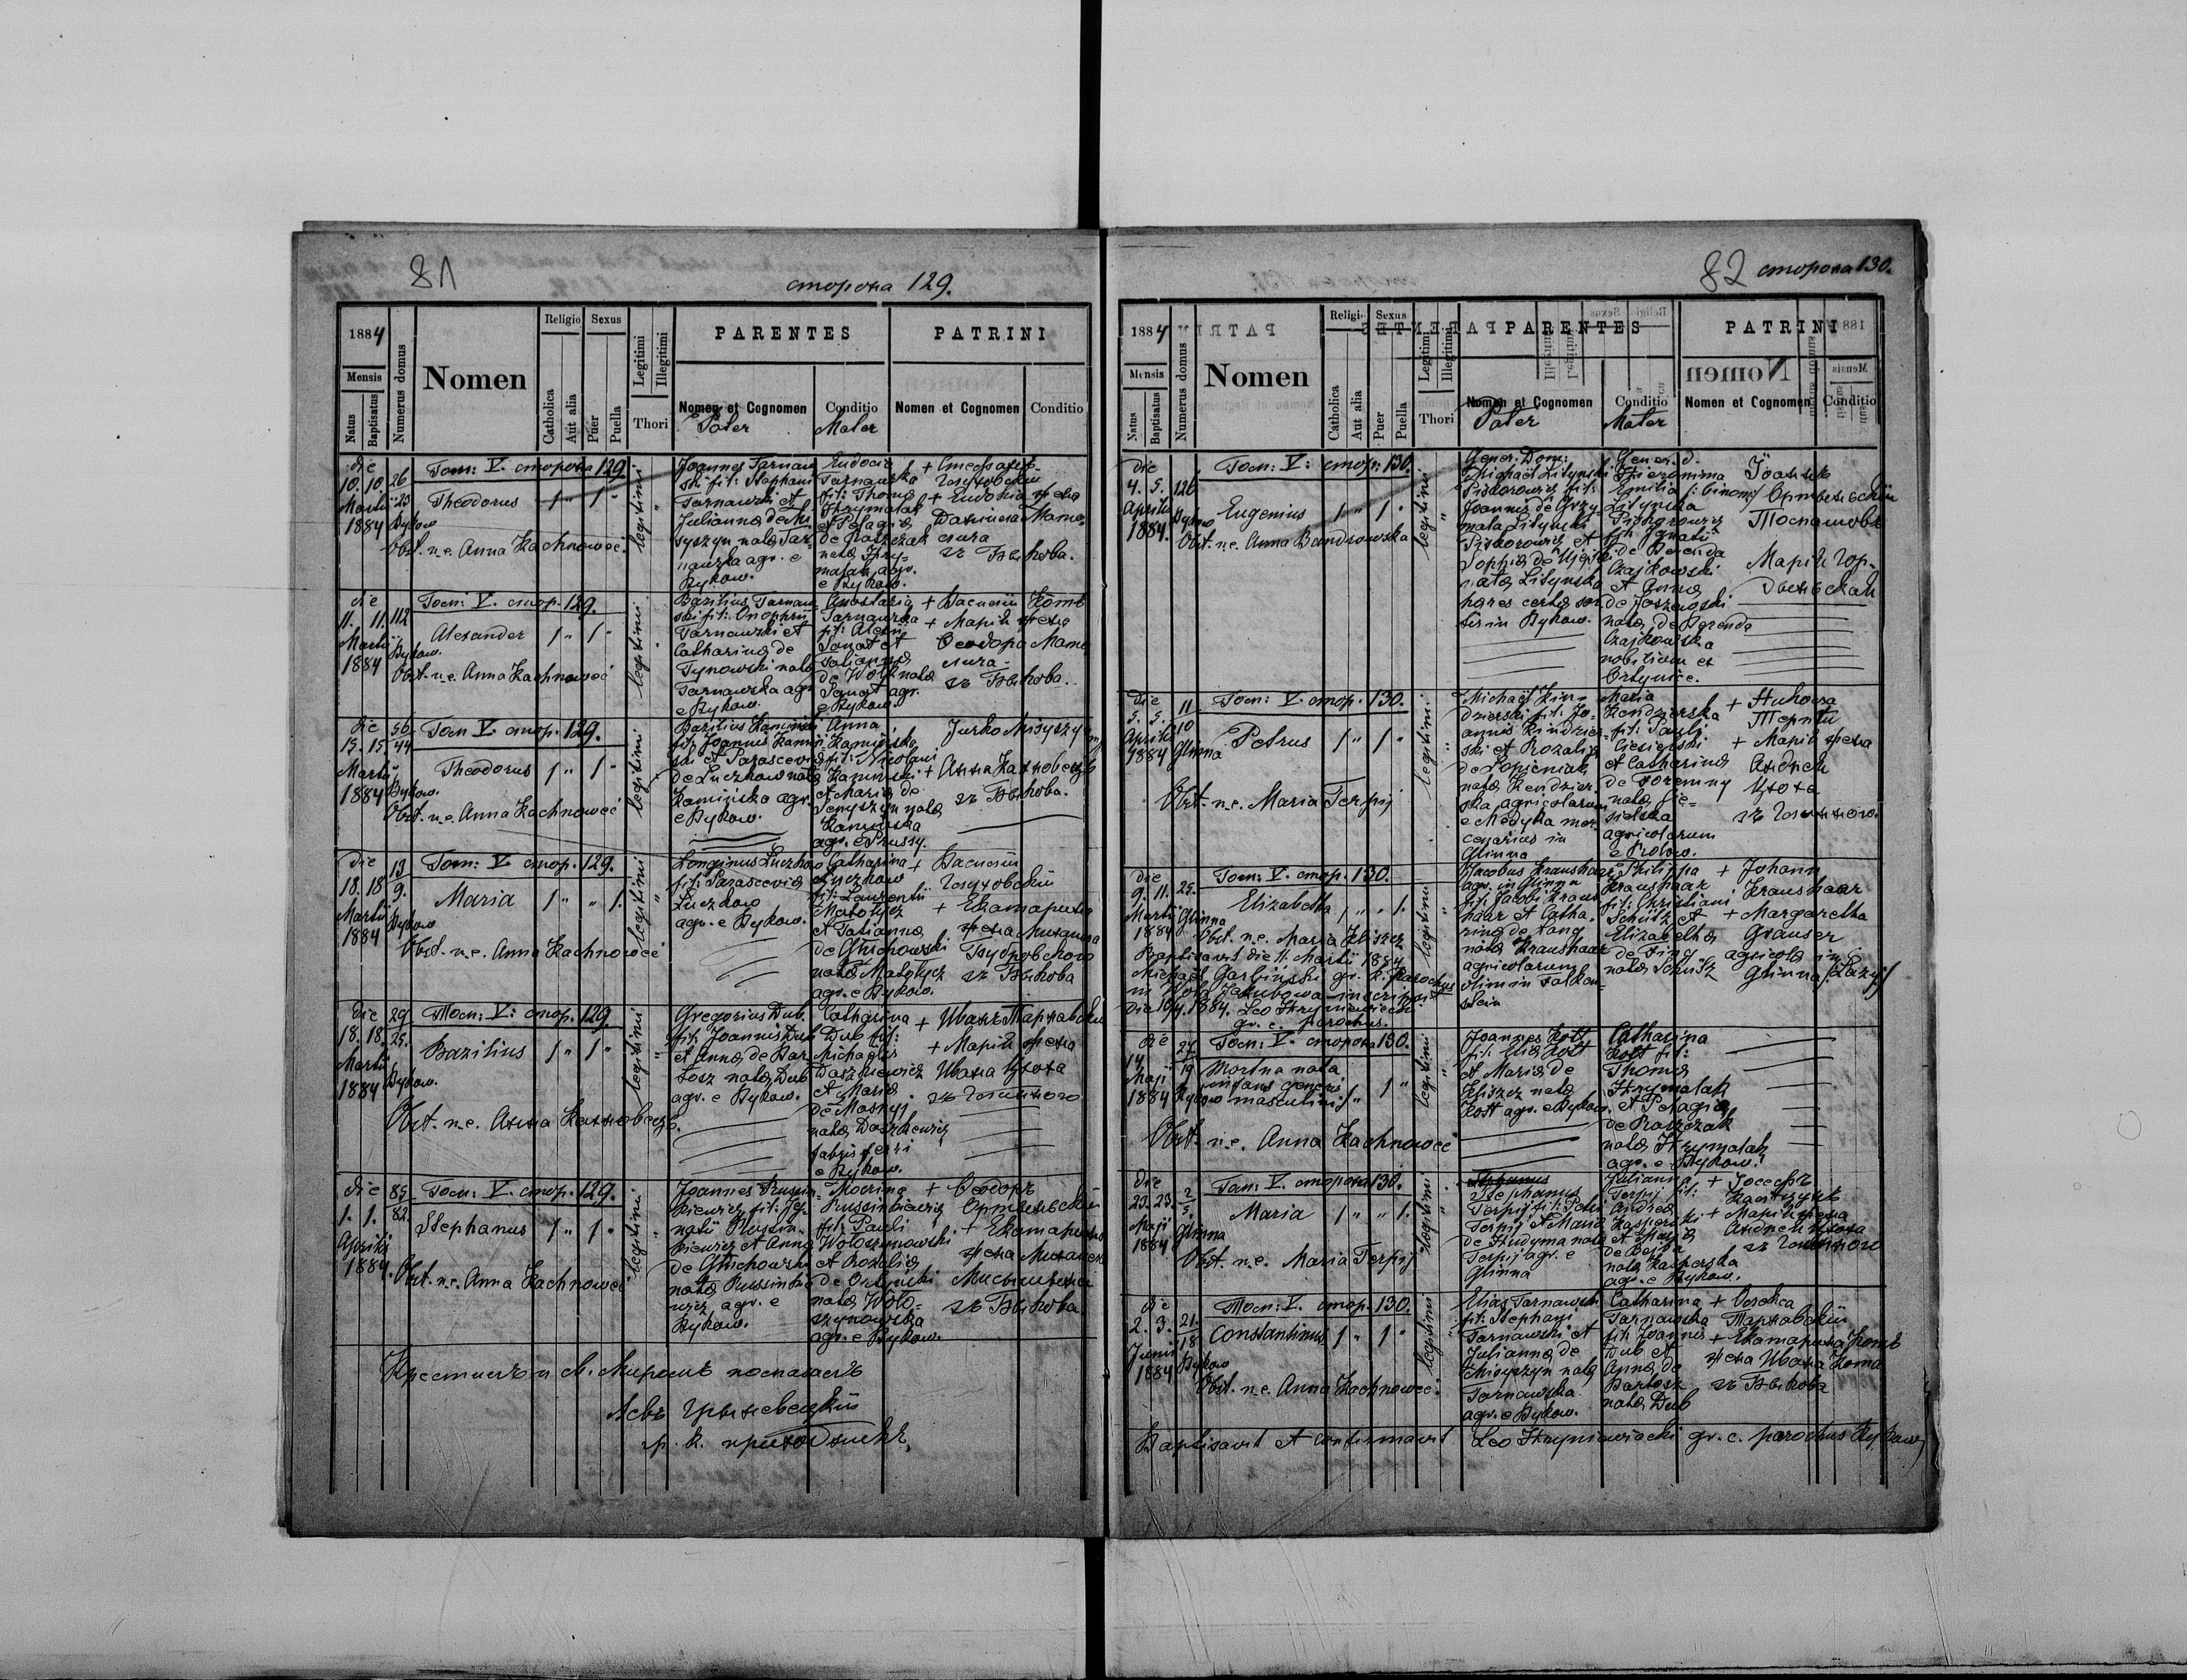 81
сторона 129.
1884
Mensis
Natus
Baptisatus
Numerus domus
Nomen
Religio
Catholica
Aut alia
Sexus
Puer
Puella
Legitimi
Illegitimi
Thori
PARENTES
Nomen et Cognomen
Conditio
Pater
Mater
PATRINI
Nomen et Cognomen
Conditio
die
10. 10
Martii
1884
26
23
Bykow
Tom: V. сторона 129.
Theodorus 1 " 1 "
Obst. n.e. Anna Kachnowec
legitimi
Joannes Tarnaw
ski fil: Stephani
Tarnawski et
Julianna de Mi
syszyn nata Tar
nawska agr. e
Bykow.
Eudocia
Tarnawska
fil: Thoma
Strymatak
et Pelagia
de Raszczak
nata Stry-
matak agr.
e Bykow.
+ Стефанъ
+ Евдокія жена
Даніила Мама
сюра
зъ Быкова.
die
11. 11.
Martii
1884
112
Bykow.
Tom: V. стор. 129.
Alexander 1 " 1 "
Obst. n.e. Anna Kachnowec
legitimi
Basilius Tarnaw
ski fil: Onophrii
Tarnawski et
Catharina de
Tynowski nata
Tarnawska agr
e Bykow.
Anastasia
Tarnawska
fil: Alexii
et
Tatianna
de Wołk nata
agr.
e Bykow.
+ Василій Котъ
+ Марія жена
Ѳеодора Мама
сюра
зъ Быкова.
die
15. 15.
Martii
1884
56
44
Bykow.
Tom V. стор. 129.
Theodorus 1 " 1 "
Obst. n.e. Anna Kachnowec
legitimi
Basilius Kaminski
fil: Joannis Kamin
ski et Parascevia
de Luczkow nata
Kaminska agr.
e Bykow.
Anna
Kaminska
fil: Nicolai
Kaminski
et Maria de
Senyszyn nata
Kaminska
agr. e Prussy.
Jurko Misyszyn
+ Анна Кахновецъ
зъ Быкова.
die
18. 18
Martii
1884
13
9.
Bykow
Tom: V. стор. 129.
Maria 1 " " 1.
Obst. n.e. Anna Kachnowec
legitimi
Longinus Luczkow
fil: Parascevia
Luczkow
agr. e Bykow.
Catharina
Luczkow
fil: Laurentii
Matolycz
et Tatianna
de Głuchowski
nata Matolycz
agr. e Bykow.
+ Василій
Глуховскій
+ Екатерина
жена Михаила
зъ Быкова
die
18. 18.
Martii
1884
29
25.
Bykow.
Том: V: стор. 129.
Bazilius 1 " 1 "
Obst. n.e. Анна Кахновецъ.
legitimi
Gregorius Dub
fil: Joannis Dub
et Anna de Bar
tosz nata Dub
agr. e Bykow.
Catharina
Dub fil:
Michaelis
Daszkiewicz
et Maria
de Mosnyj
nata Daszkiewicz
fabri ferri
e Bykow.
+ Иванъ Тарнавскій
+ Марія жена
Ивана Кгота
зъ Глинного
die
1. 1.
Aprilis
1884
85
82
Tom: V. стор. 129.
Stephanus 1 " 1 "
Obst. n.e. Anna Kachnowec
legitimi
Joannes Russin-
kiewicz fil: Ig-
natii Russin-
kiewicz et Anna
de Głuchowski
nata Russinkie
wicz agr. e
Bykow.
Mocrina
Russinkiewicz
fil: Pauli
Wołoszynowski
et Rozalia
de Ortynski
nata Woło-
szynowska
agr. e Bykow.
+ Ѳеодоръ
Ортынскій
+ Екатерина
жена Михаила
зъ Быкова
Крестилъ и св. Миромъ помазалъ
Левъ Гриневецкій
гр. к. приходникъ
82 сторона 130.
1884
Mensis
Natus
Baptisatus
Numerus domus
Nomen
Religio
Catholica
Aut alia
Sexus
Puer
Puella
Legitimi
Illegitimi
Thori
PARENTES
Nomen et Cognomen
Conditio
Pater
Mater
PATRINI
Nomen et Cognomen
Conditio
die
4. 5.
Aprilis
1884.
126
Bykow
Tom: V: стор: 130.
Eugenius 1 " 1 "
Obst. n.e. Anna Bandrowska
legitimi
Gener. Dom:
Michaël Litynski
Piskorowicz fil:
Joannis de Grzy-
mała Litynski
Piskorowicz et
Sophia de
nata Litynska
hares certa sor
tis in Bykow.
Gener. d.
Hieronima
Emilia (: binomy
Litynska
Piskorowicz
fil: Ignatii
de Berenda
Czajkowski
et Anna
de Joszewski
nata de Berenda
Czajkowska
nobilium ex
Ortynice.
Іоаннъ
Ортынскій
Марія Гор-
динская
die
5. 5.
Aprilis
1884
11
10
Glinna
Tom: V. стор. 130.
Petrus 1 " 1 "
Obst. n.e. Maria Terpij
legitimi
Michaël Kin-
dzierski fil: Jo-
annis Kindzier-
ski et Rozalia
de Łopieniak
nata Kendzier-
ska agricolarum
e Medyka mer-
cenarius in
Glinna
Maria
Kendzierska
fil: Pauli
Ciesielski
et Catharina
de Foremny
nata Cie-
sielska
agricolarum
e Protow.
+ Никола
Терпій
+ Марія жена
Андрея
Кгота
зъ Глинного
die
9. 11.
Martii
1884
25.
Glinna
Tom: V. стор. 130.
Elizabetha 1 " " 1.
Obst. n.e. Maria Kliszcz
Baptisavit die 11. Martii 1884
Michael Garbiński gr. c. parochus
in Wola Jakubowa inscripsit
die 10/4. 1884. Leo Hryniewiecki
gr. c. parochus.
legitimi
Jacobus Kraushaar
agr. in Glinna
fil: Jacobi Kraus
haar et Catha-
rina de Lang
nata Kraushaar
agricolarum
olim in Falken-
stein
Philippa
Kraushaar
fil: Christiani
Schütz et
Elizabetha
de Jing
nata Schütz
+ Johann
Kraushaar
+ Margaretha
Grauser
agricola in
Glinna
die
14
Maji
1884
27
19
Bykow
Tom: V. сторона 130.
Mortna nata
infans generis
masculini 1 " 1 "
Obst. n.e. Anna Kachnowec
legitimi
Joannes Kott
fil: Elia Kott
et Maria de
Kliszcz nata
Kott agr. e Bykow.
Catharina
Kott fil:
Thoma
Strymatak
et Pelagia
de Raszczak
nata Strymatak
agr. e Bykow.
die
23. 23.
Maji
1884
2
5.
Glinna
Tom: V. сторона 130.
Maria 1 " " 1.
Obst. n.e. Maria Terpij
legitimi
Stephanus
Terpij fil: Petri
Terpij et Maria
de Hudyma nata
Terpij agr. e
Glinna
Julianna
Terpij fil:
Andrea
Kasperski
et Maria
nata Kasperska
agr. e Bykow.
+ Іосефъ
+ Марія жена
Андрея Кгота
зъ Глинного
die
2. 3.
Junii
1884
21.
18
Bykow
Том: V. стор. 130.
Constantinus 1 " 1 "
Obst. n.e. Anna Kachnowec.
legitimi
Elias Tarnawski
fil: Stephani
Tarnawski et
Julianna de
Misyszyn nata
Tarnawska
agr. e Bykow.
Catharina
Tarnawska
fil: Joannis
Dub et
Anna de
Bartosz
nata Dub
+ Олекса
Тарнавскій
+ Екатерина Котъ
жена Ивана Кота
зъ Быкова
Baptisavit et confirmavit Leo Hryniewiecki gr. c. parochus Bykow